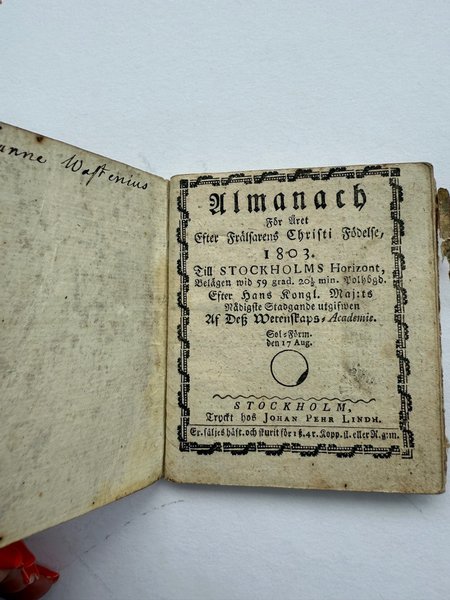 Wastenius
Almanach
För Året
Efter Frälsarens Christi Födelse,
1803.
Till STOCKHOLMS Horizont,
Belägen wid 59 grad. 20½ min. Polhögd.
Efter Hans Kongl. Maj:ts
Nådigste Stadgande utgifwen
Af Deß Wetenskaps-Academie.
Sol-Förm.
den 17 Aug.
STOCKHOLM,
Tryckt hos JOHAN PEHR LINDH.
Ex. säljes häft. och skurit för 1 ß. 4 r. Kopp. sl. eller R.g:m.